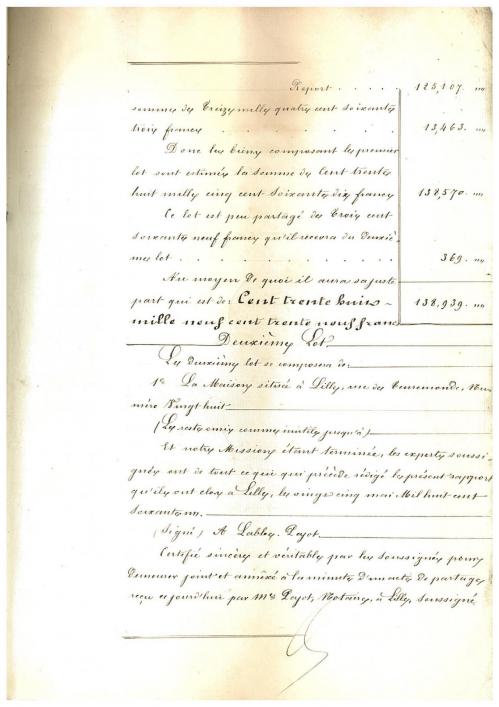 Report . . . . . 125,107. "
somme de Treize mille quatre cent soixante
trois francs . . . . . . . . 13,463. "
Donc les biens composant le premier
lot sont estimés la somme de Cent trente
huit mille cinq cent soixante dix francs 138,570 "
Ce lot est peu partagé de Trois cent
soixante neuf francs qu'il recevra du deuxiè-
me lot . . . . . . . . . 369. "
Au moyen De quoi il aura sa juste
part qui est de: Cent trente huit- 138,939. "
mille neuf cent trente neuf francs
Deuxième Lot
Le deuxième lot se composera de:
1° La Maison située à Lille, rue de Tenremonde, Nu-
méro Vingt huit
(Le reste omis comme inutile jusqu'à)
Et notre Mission étant terminée, les experts soussi-
gnés ont de tout ce qui précède rédigé le présent rapport
qu'ils ont clos à Lille, le vingt cinq mai Mil huit cent
soixante un.
(Signé) A Labbe. Pajot
Certifié sincère et véritable par les soussignés pour
Demeurer joint et annexé à la minute D'un acte de partage
reçu ce jourd'hui par Me Pajot, Notaire, à Lille, soussigné